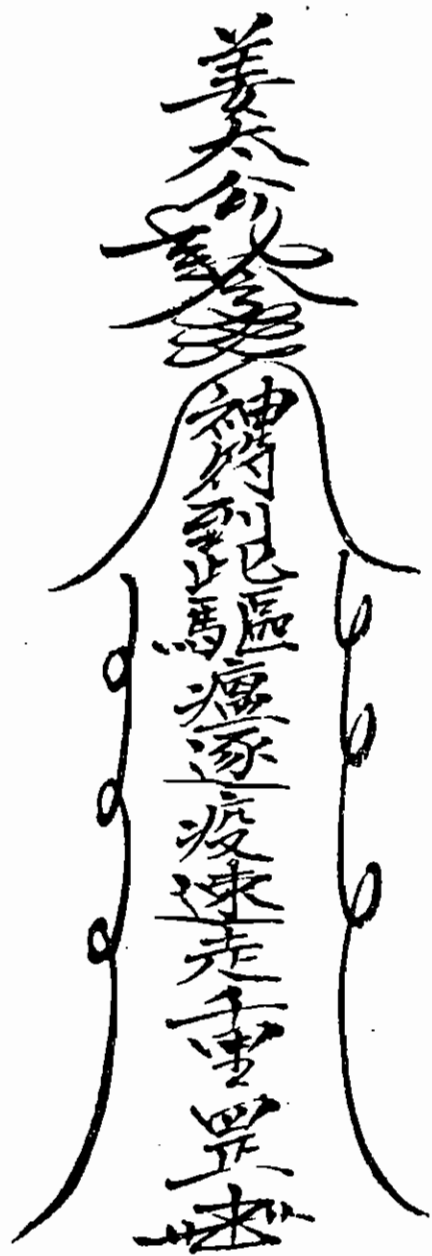 姜太公
神符到此驅瘟逐疫速走千里罡